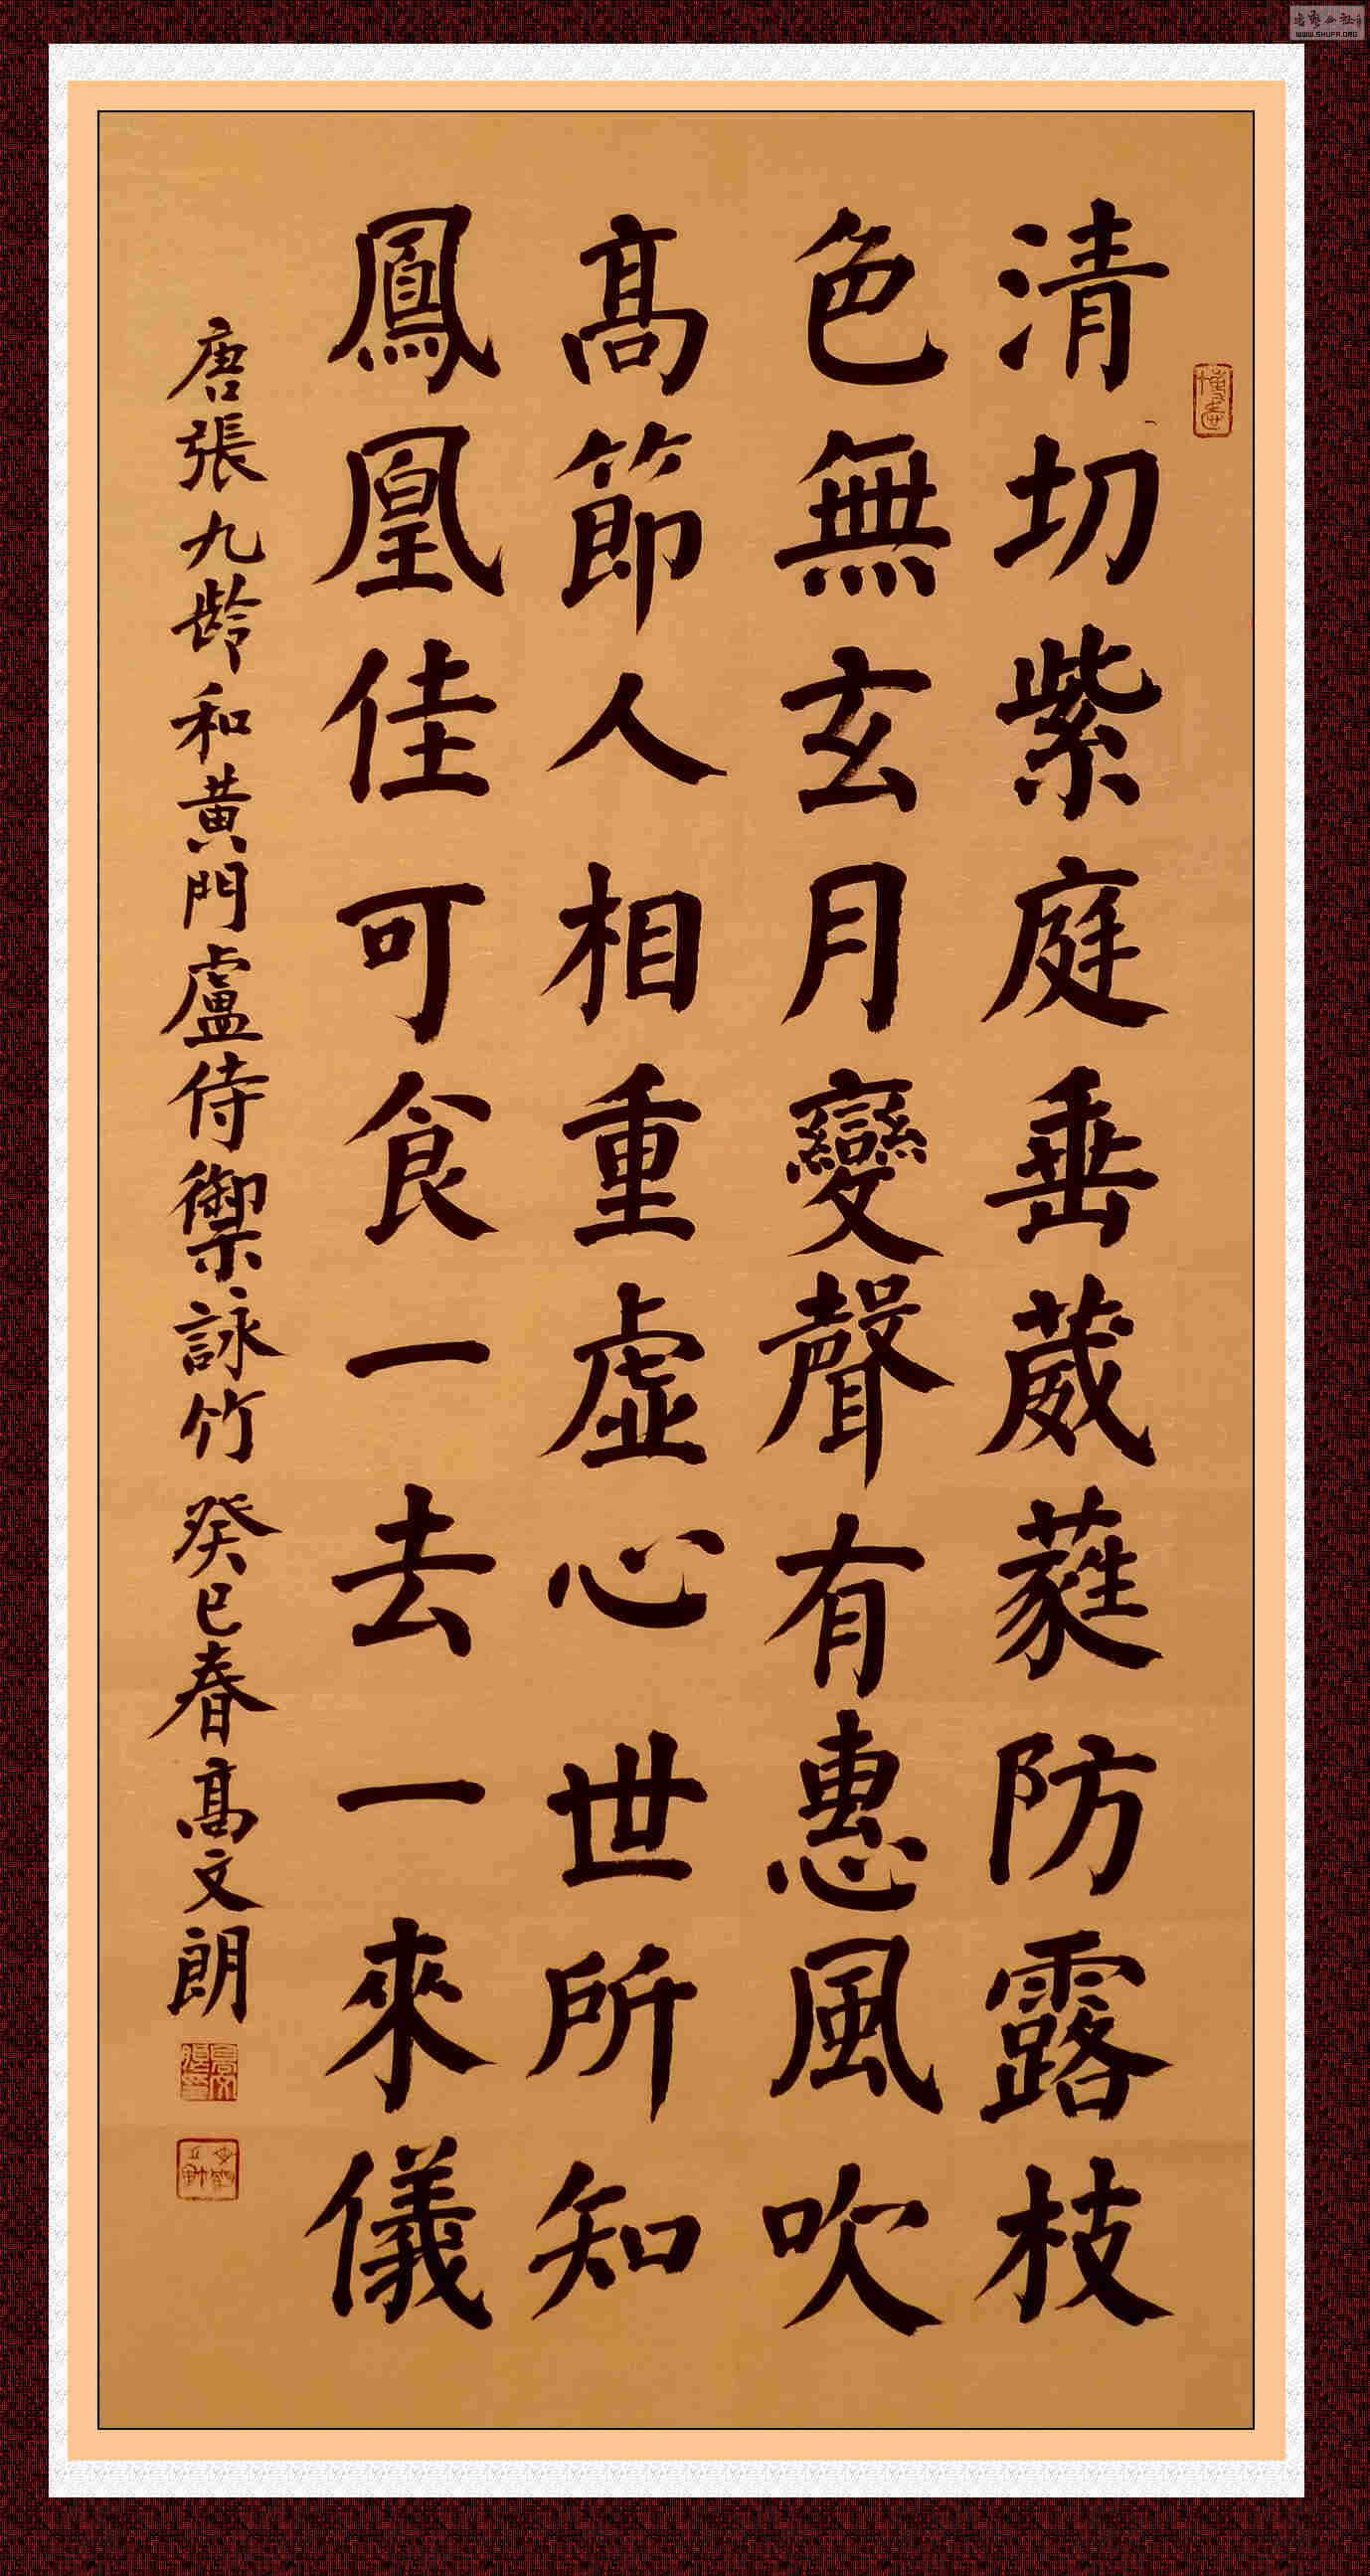 清切紫庭垂葳蕤防露枝
色無玄月變聲有惠風吹
高節人相重虛心世所知
鳳凰佳可食一去一來儀
唐張九齡和黃門盧侍禦詠竹 癸巳春高文朗
WWW.SHUFA.ORG